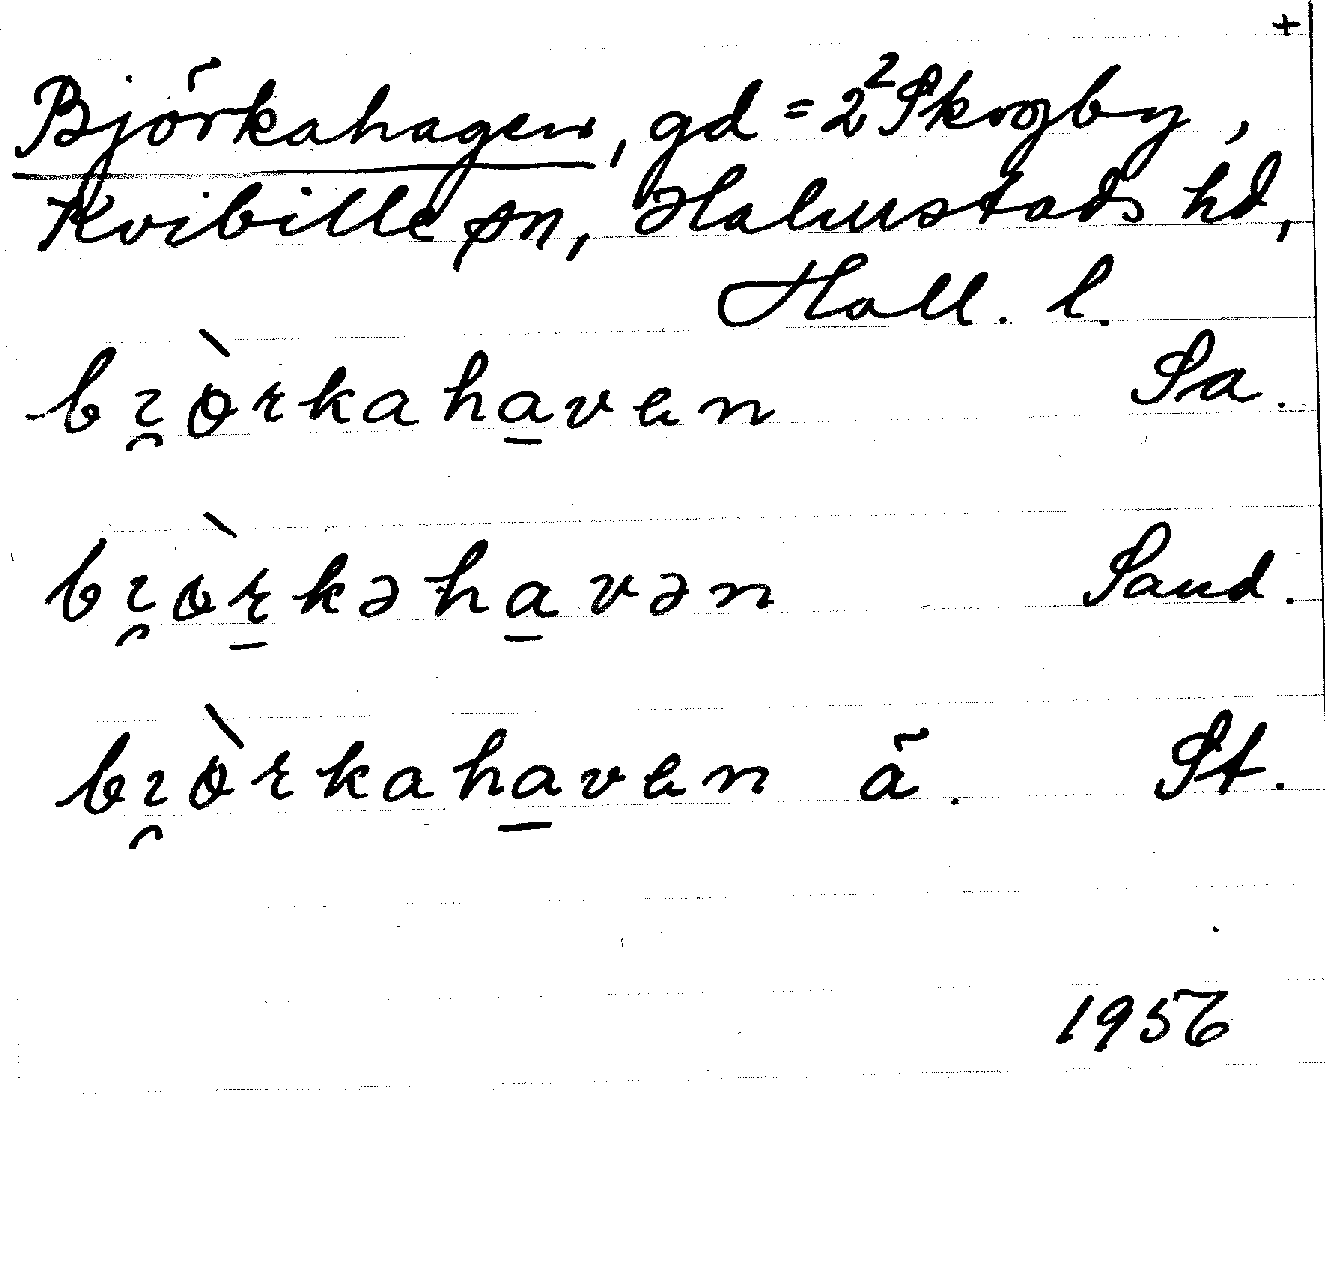 +
Björkahagen, gd = 2² Skogby,
Kvibille sn, Halmstads hd,
Hall. l.
bı̯òrkahava̱n Sa.
bı̯òrkəha̱vən Sand.
bı̯òrkaha̱van å. St.
1956